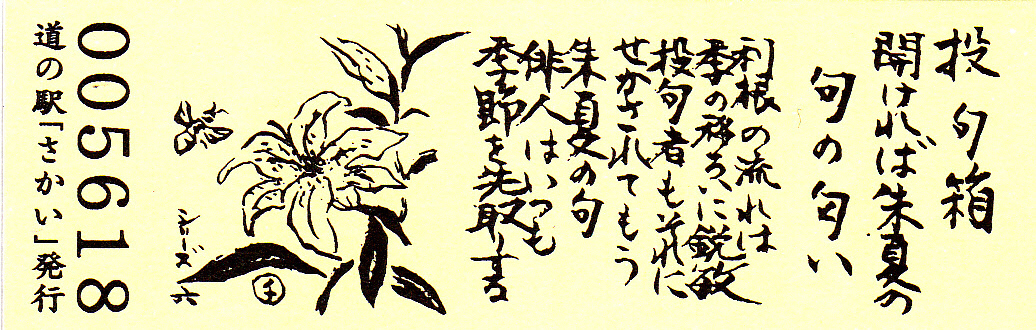 投句箱
開ければ朱夏の
句の匂い
利根の流れは
季の移ろいに鋭敏
投句者もそれに
せかされてもう
朱夏の句
俳人はいつも
季節を先取りする
シリーズ 六
千
005618
道の駅「さかい」発行